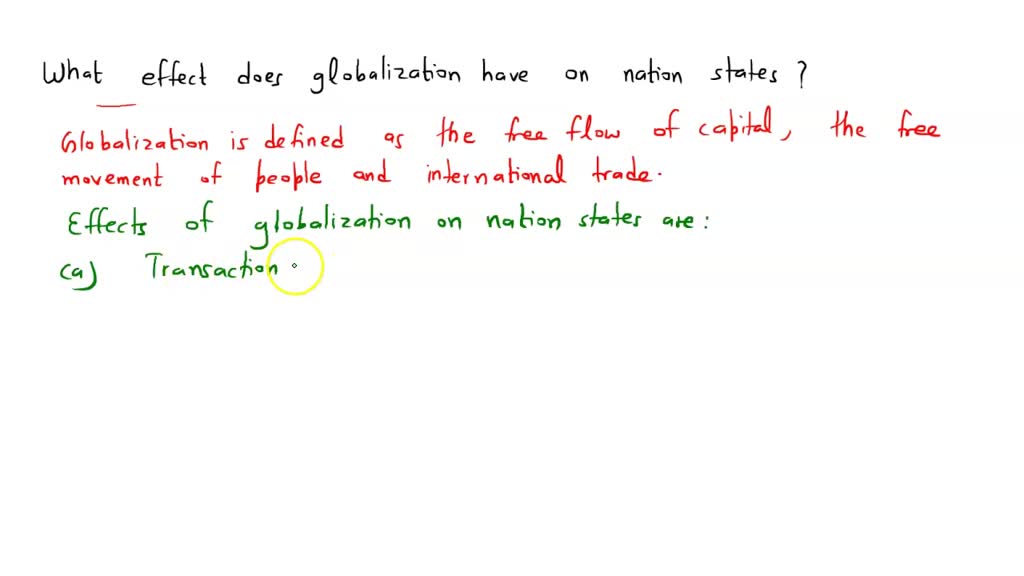 What effect does globalization have on nation states ?
Globalization is defined as the free flow of capital, the free
movement of people and international trade.
Effects of globalization on nation states are :
(a) Transaction